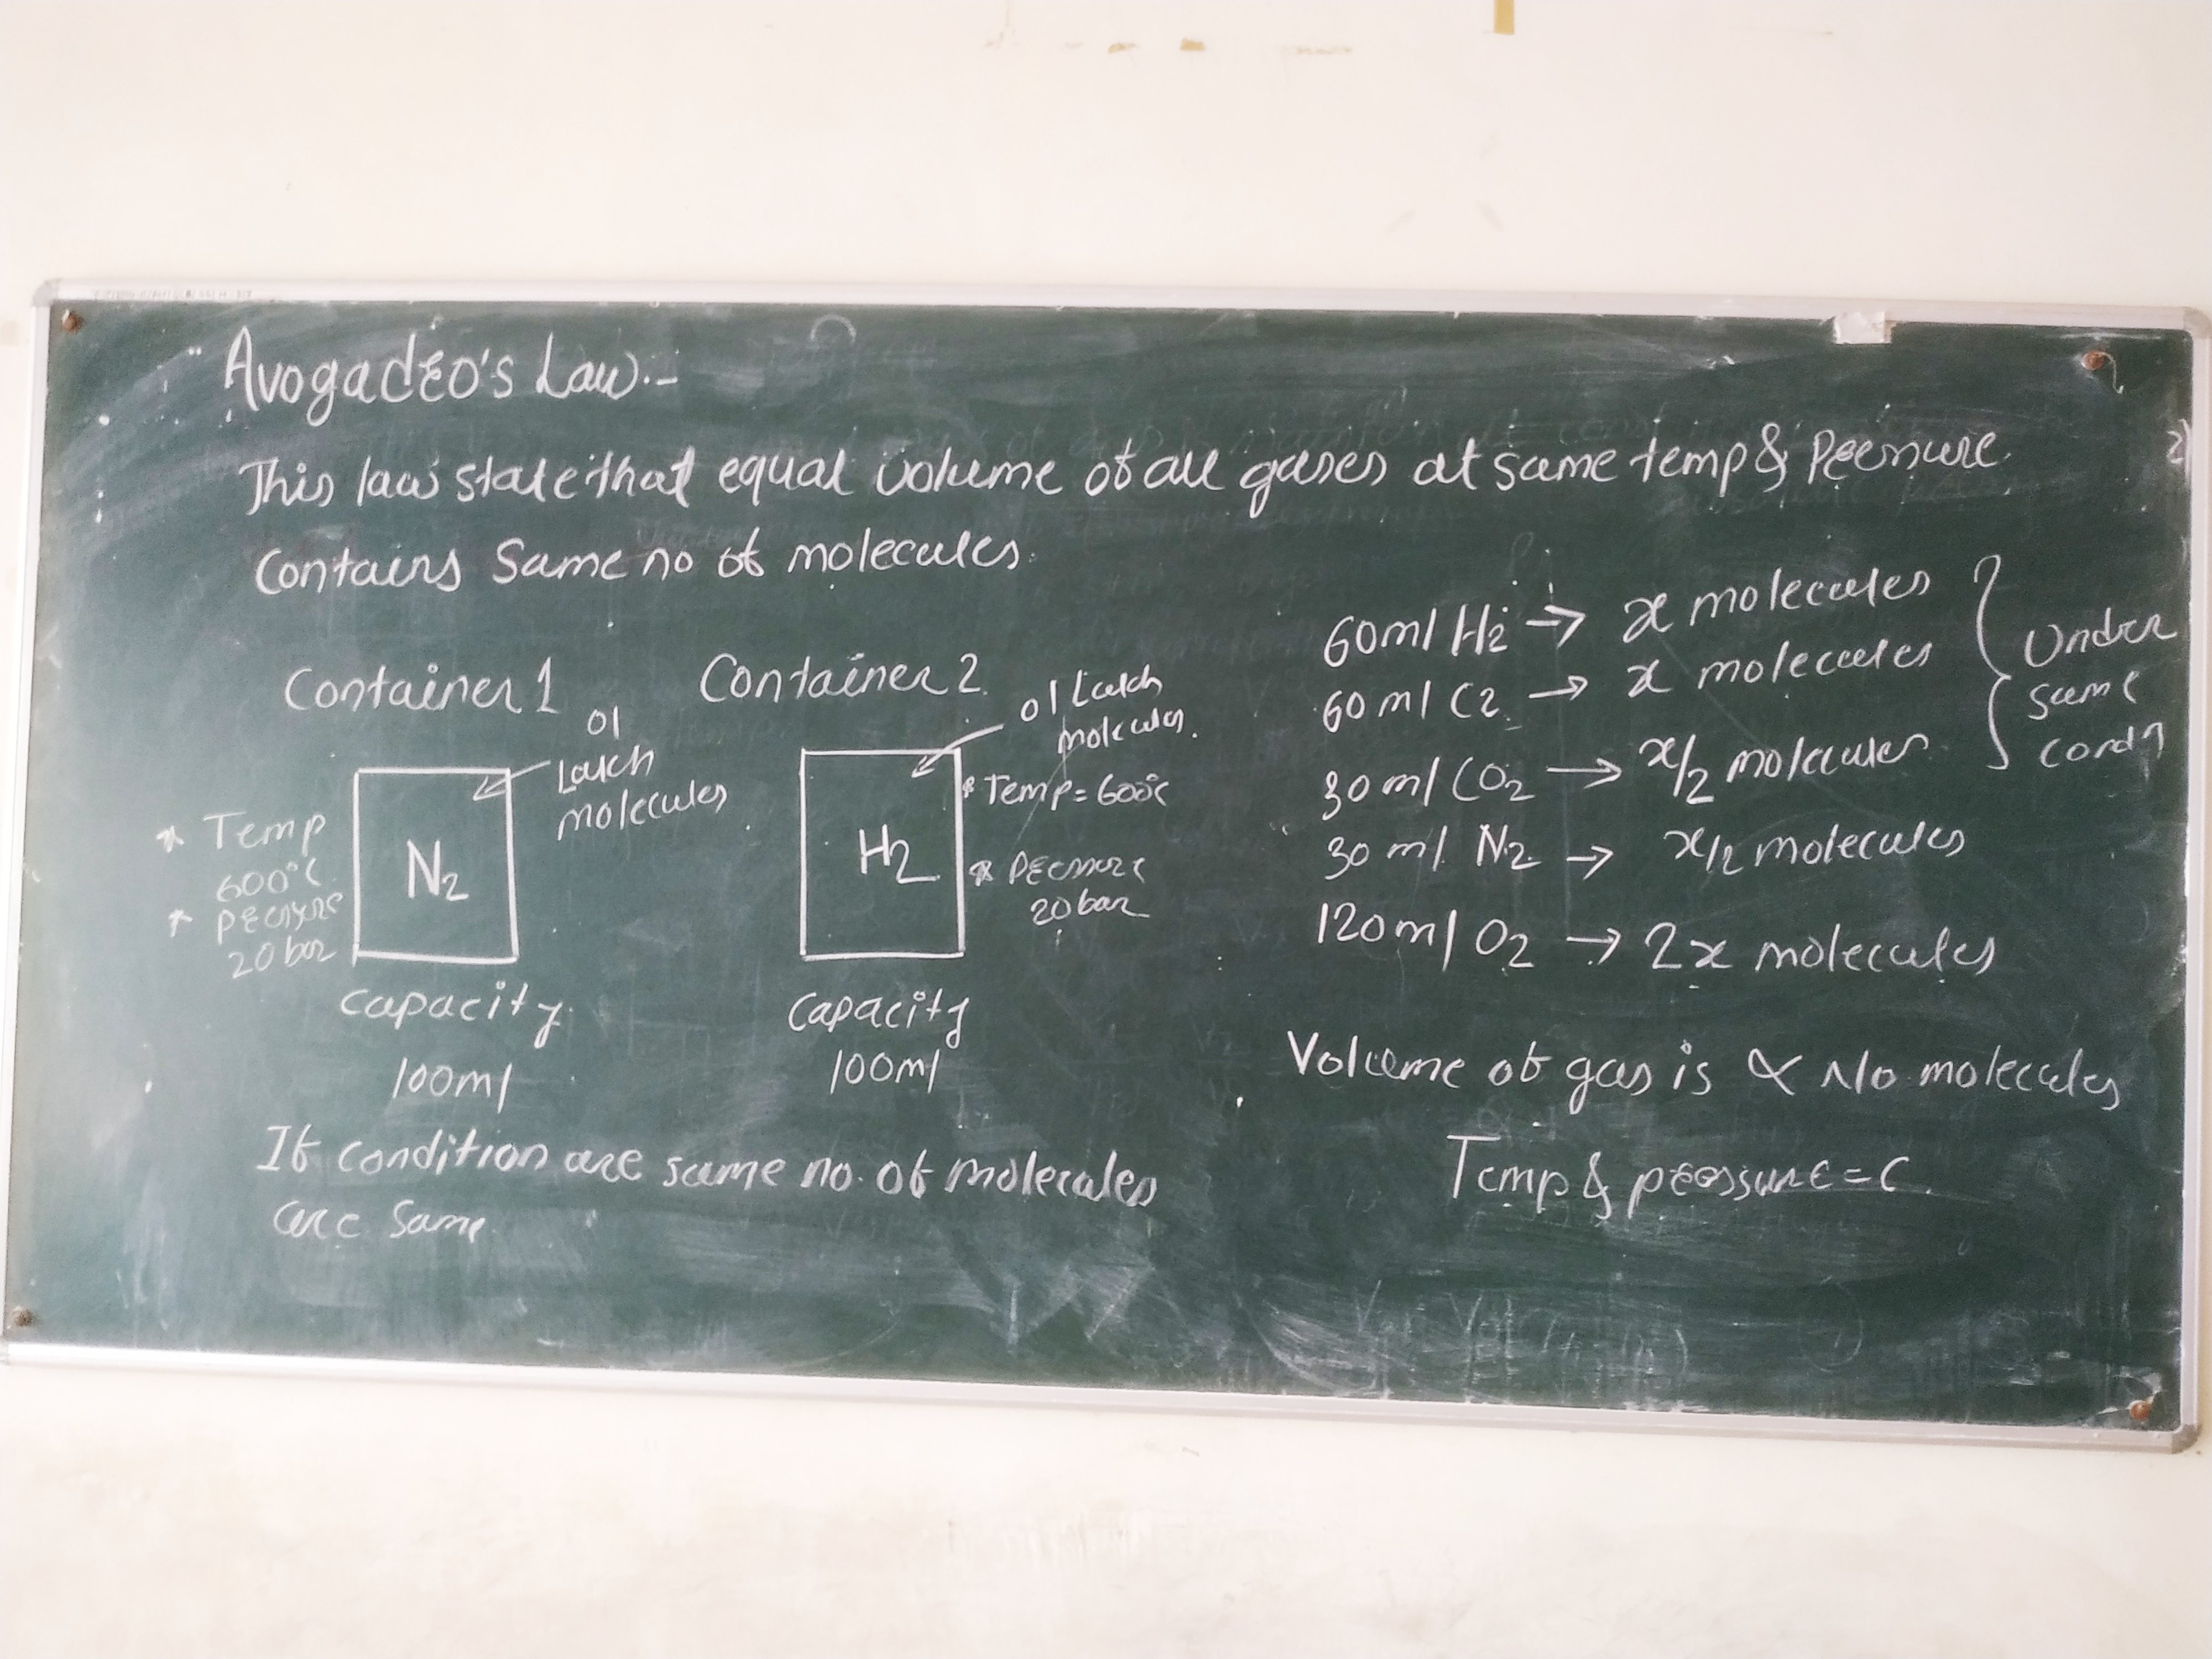 Avogadro's Law:-
This law state that equal volume of all gases at same temp & Pressure
Contains Same no of molecules.
Container 1
01
Lakh
molecules
* Temp
600°C
* pressure
20 bar
N2
Capacity
100ml
Container 2
01 Lakh
molecules.
* Temp = 600°C
* Pressure
20 bar
H2
Capacity
100ml
If condition are same no. of molecules
are same
60ml H2 → x molecules
60ml C2 → x molecules
30 ml CO2 → x/2 molecules
30 ml N2 → x/2 molecules
120ml O2 → 2x molecules
Under
same
condn
Volume of gas is ∝ No molecules
Temp & pressure = C
2)